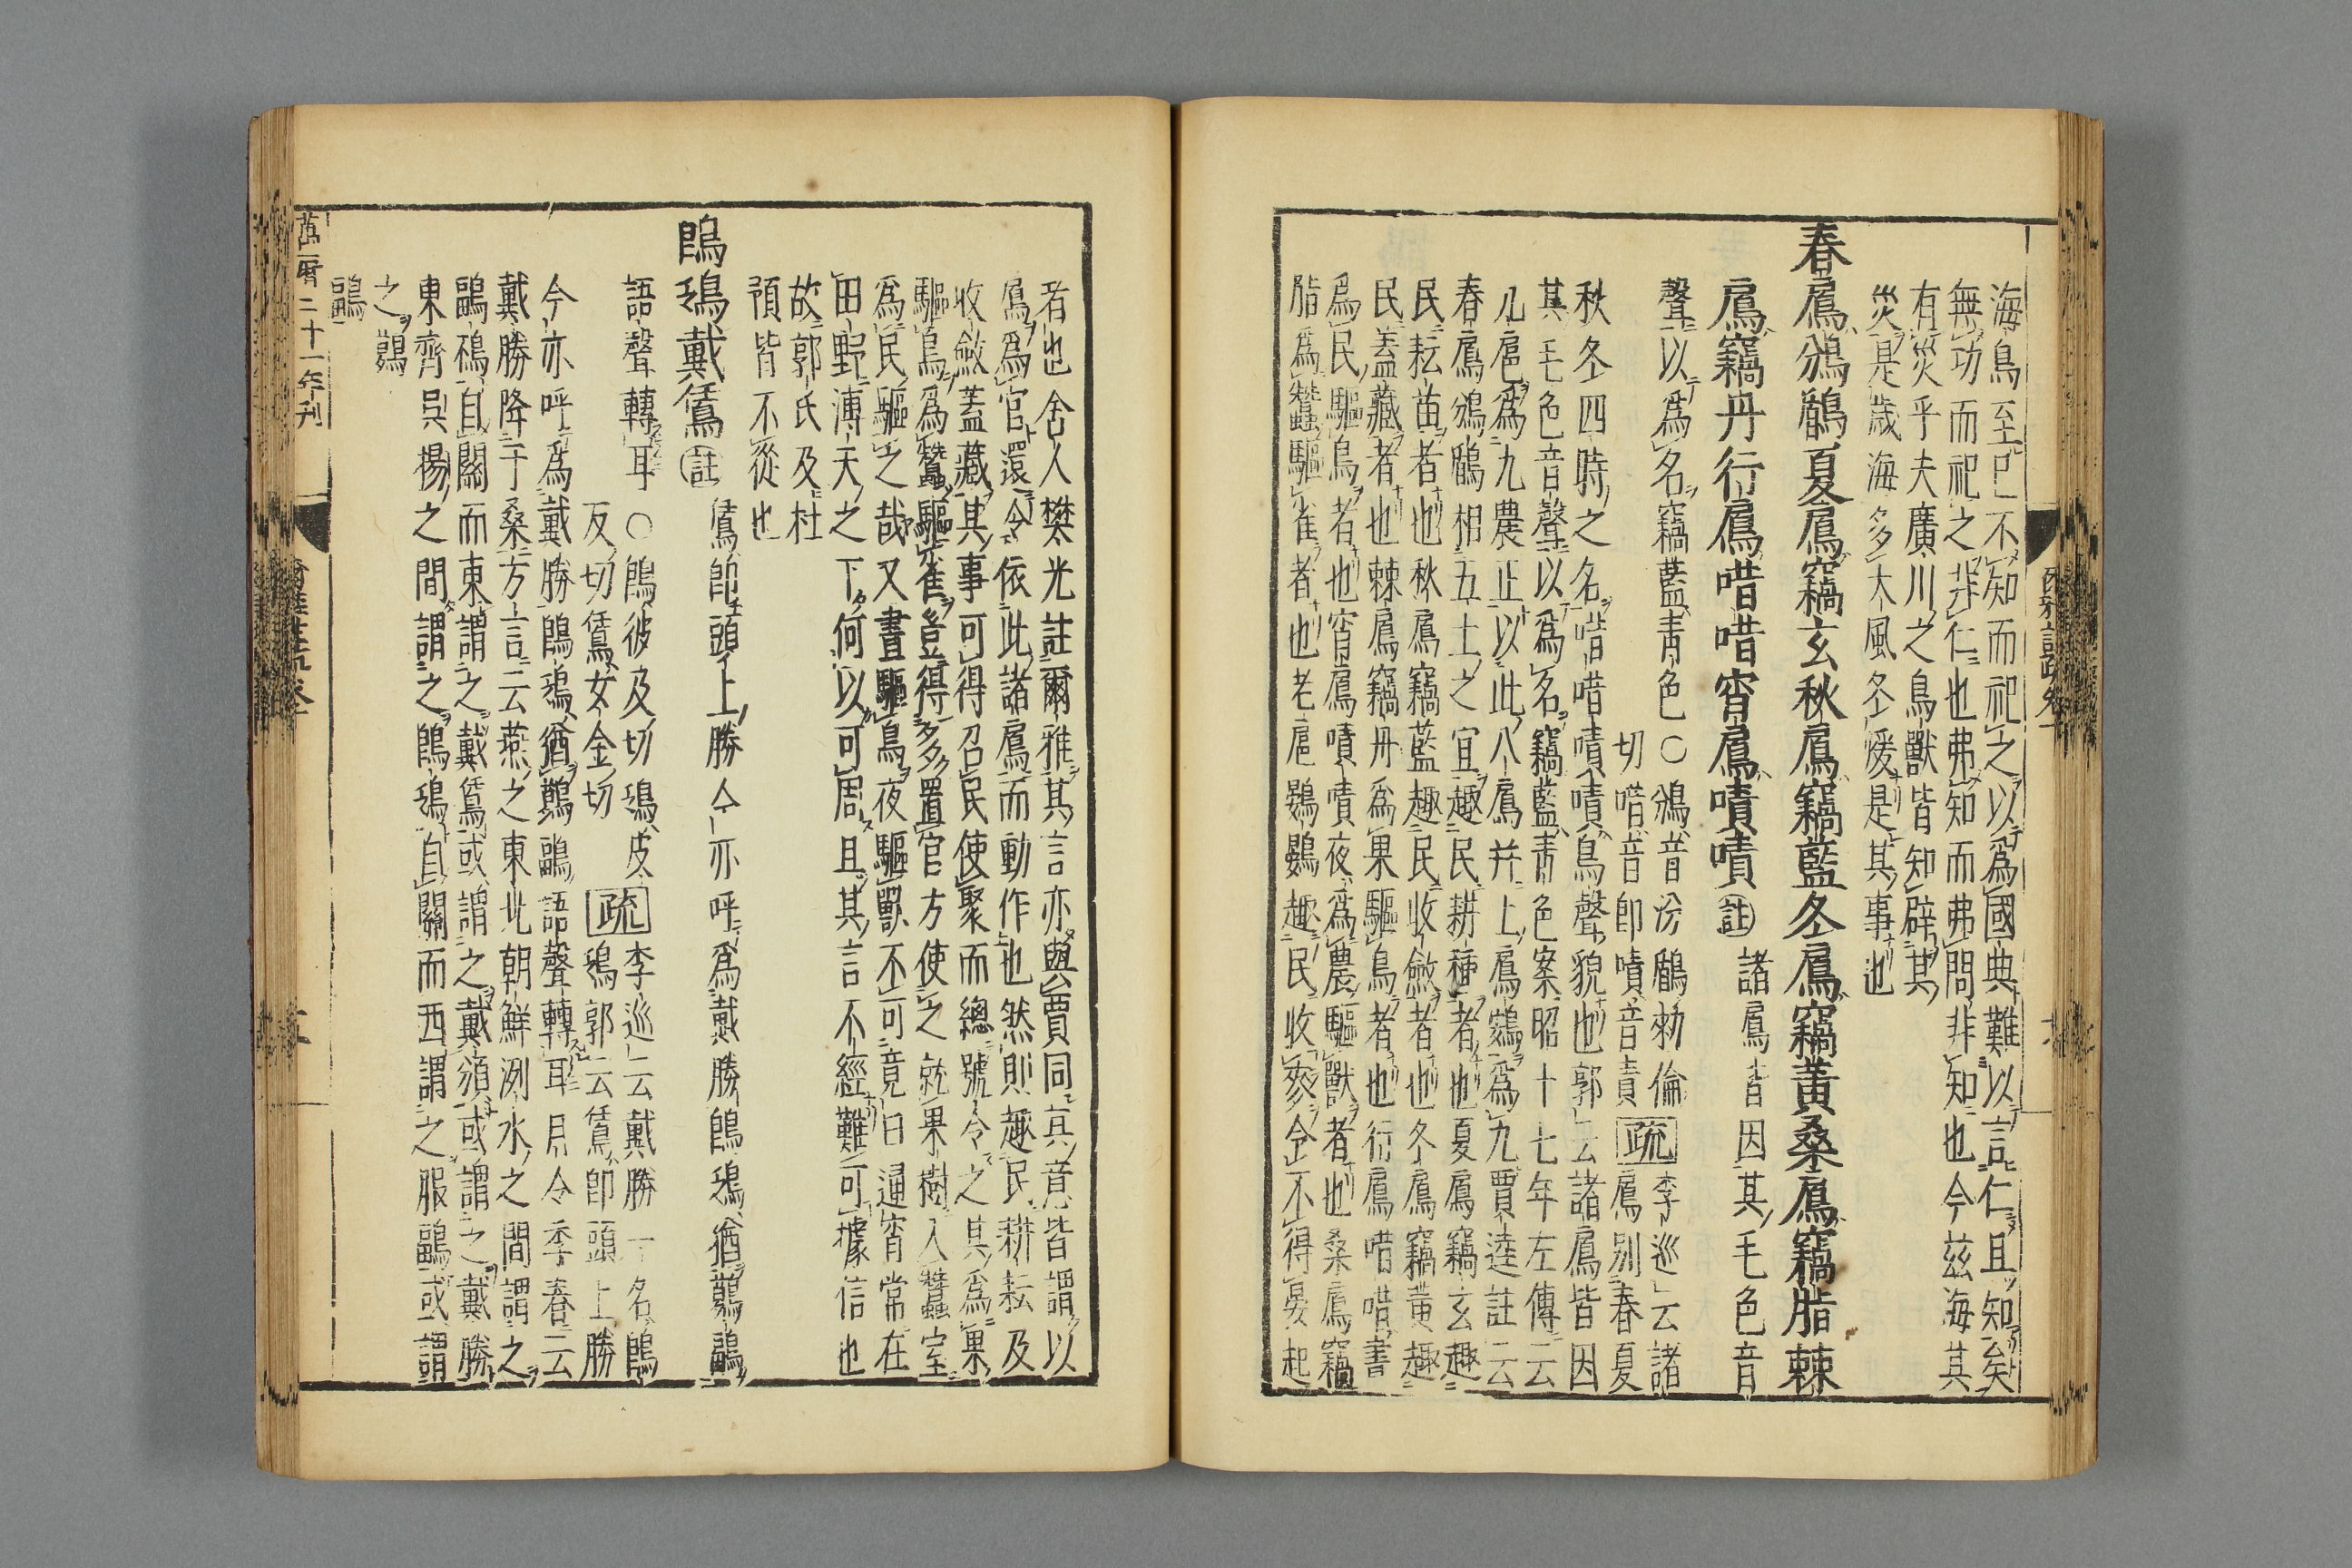 海鳥至已不知而祀之以為國典難以言仁且知矣
無功而祀之非仁也弗知而弗問非知也今茲海其
有災乎夫廣川之鳥獸皆知辟其
災是歲海多大風冬煖是其事也
春鳸鳻鶞夏鳸竊玄秋鳸竊藍冬鳸竊黃桑鳸竊脂棘
鳸竊丹行鳸唶唶宵鳸嘖嘖
註
諸鳸皆因其毛色音
聲以為名竊藍青色○鳻音汾鶞勑倫
切唶音即嘖音責
疏
李巡云諸
鳸別春夏
秋冬四時之名唶唶嘖嘖鳥聲貌也郭云諸鳸皆因
其毛色音聲以為名竊藍青色案昭十七年左傳云
九扈為九農正以此八鳸并上鳸鷃為九賈逵註云
春鳸鳻鶞相五土之宜趣民耕種者也夏鳸竊玄趣
民耘苗者也秋鳸竊藍趣民收斂者也冬鳸竊黃趣
民蓋藏者也棘鳸竊丹為果驅鳥者也行鳸唶唶晝
為民驅鳥者也宵鳸嘖嘖夜為農驅獸者也桑鳸竊
脂為蠶驅雀者也老扈鷃鷃趣民收麥令不得晏起
者也舍人樊光註爾雅其言亦與賈同其意皆謂以
鳸為官還令依此諸鳸而動作也然則趣民耕耘及
收斂蓋藏其事可得召民使聚而總號令之其為果
驅鳥為蠶驅雀豈得多置官方使之就果樹入蠶室
為民驅之哉又晝驅鳥夜驅獸不可竟日通宵常在
田野溥天之下何以可周且其言不經難可據信也
故郭氏及杜
預皆不從也
鵖鴔戴鵀
註
鵀即頭上勝今亦呼為戴勝鵖鴔猶鶝鶔
語聲轉耳
○鵖彼及切鴔皮
及切鵀女金切
疏
李巡云戴勝一名鵖
鴔郭云鵀即頭上勝
今亦呼為戴勝鵖鴔猶鶝鶔語聲轉耳月令季春云
戴勝降于桑方言云燕之東北朝鮮洌水之間謂之
鶝䲹自關而東謂之戴鵀或謂之戴頒或謂之戴勝
東齊吳揚之間謂之鵖鴔自關而西謂之服鶝或謂
之鶷
鶝
萬曆二十一年刊